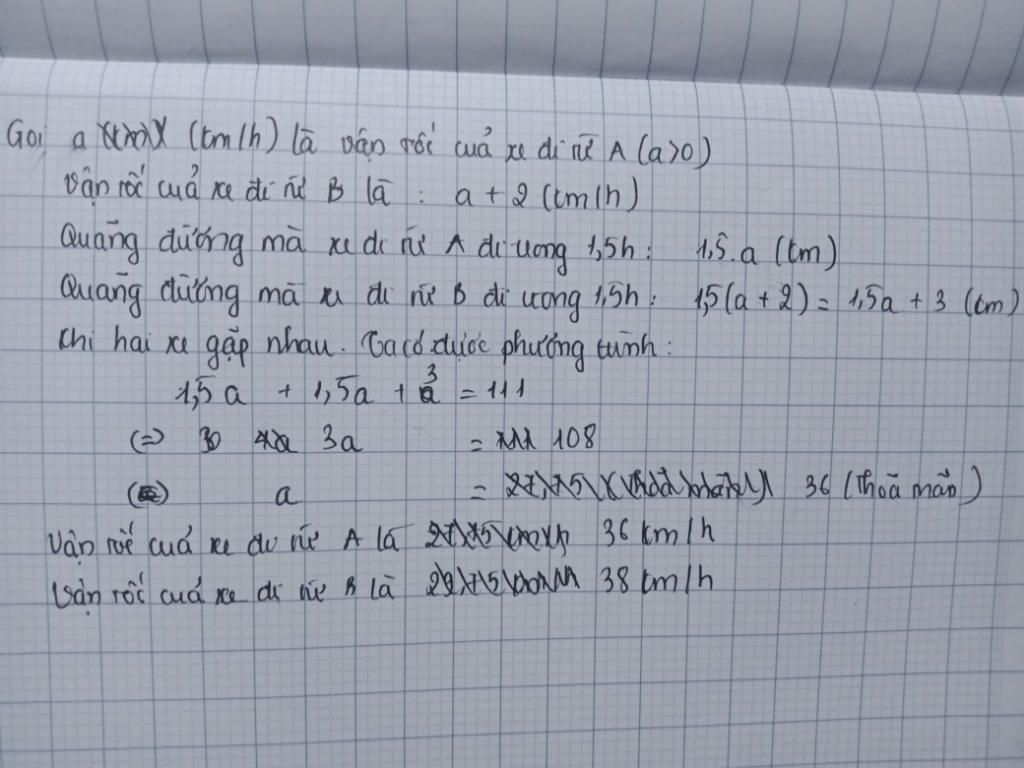 Gọi a (km/h) là vận tốc của xe đi từ A (a>0)
Vận tốc của xe đi từ B là : a + 2 (km/h)
Quãng đường mà xe đi từ A đi trong 1,5h : 1,5.a (km)
Quãng đường mà xe đi từ B đi trong 1,5h : 1,5(a + 2) = 1,5a + 3 (km)
Khi hai xe gặp nhau. Ta có được phương trình :
1,5a + 1,5a + 3 = 111
(=) 3a = 108
a = 36 (thoả mãn)
Vận tốc của xe đi từ A là 36 km/h
Vận tốc của xe đi từ B là 38 km/h